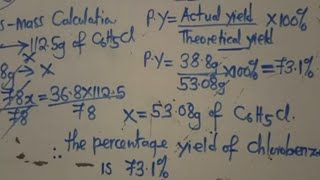 s-Mass Calculation
→ 112.5g of C₆H₅Cl
8g → x
78x/78 = 36.8x112.5/78
x = 53.08g of C₆H₅Cl
P.Y = Actual yield/Theoretical yield x 100%
P.Y = 38.8g/53.08g x 100% = 73.1%
∴ the percentage yield of Chlorobenz
is 73.1%